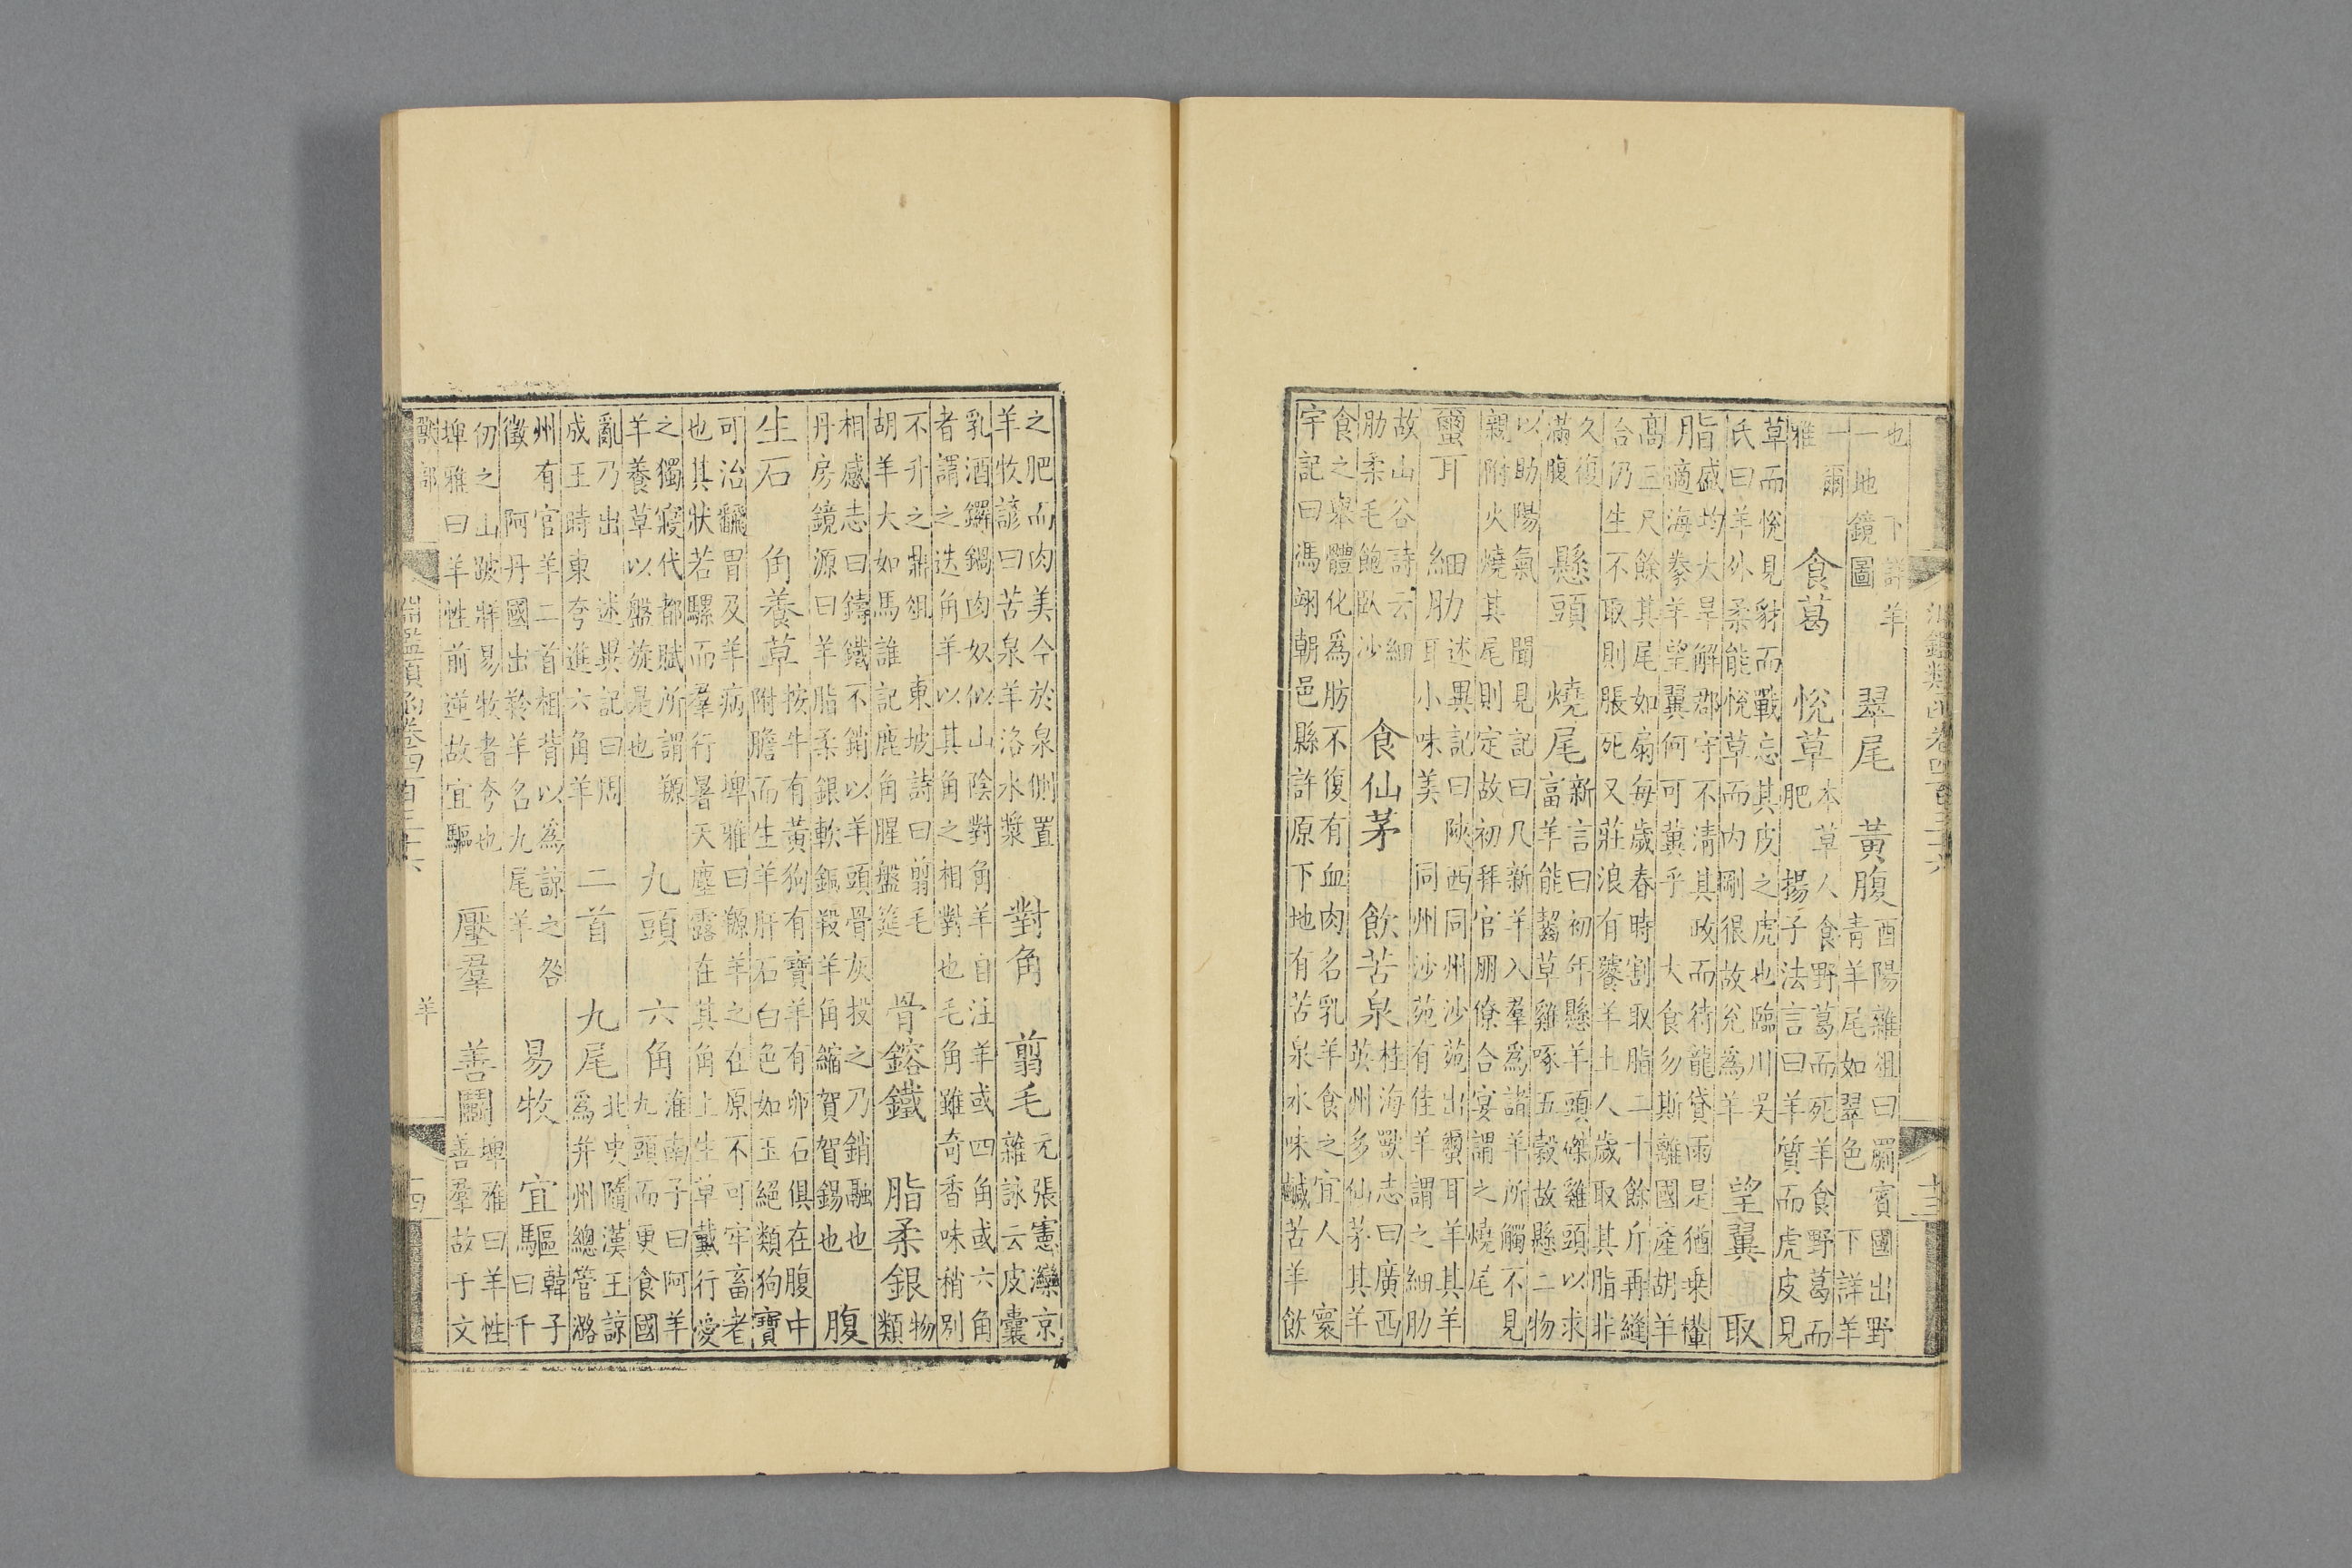 淵鑑類函卷四百三十六 十三
也 下詳羊
一地鏡圖
翠尾 黃腹
酉陽雜俎曰罽賓國出野
青羊尾如翠色下詳羊
一爾
雅
食葛 悅草
本草人食野葛而死羊食野葛而
肥 揚子法言曰羊質而虎皮見
草而悅見豺而戰忘其皮之虎也臨川吳
氏曰羊外柔能悅草而內剛很故兊為羊
望翼 取
脂
盛均大旱解郡守不清其政而待龍貸雨是猶乗
適海豢羊望翼何可冀乎 大食勿斯離國產胡羊
高三尺餘其尾如扇每歲春時割取脂二十餘斤再縫
合仍生不取則脹死又莊浪有羊土人歲取其脂非
久復
滿腹
懸頭 燒尾
新言曰初年懸羊頭傑雞頭以求
富羊能齧草雞啄五穀故懸二物
以助陽氣 聞見記曰凡新羊入羣為諸羊所觸不見
親附火燒其尾則定故初拜官朋僚合宴謂之燒尾
蠒耳 細肋
述異記曰陜西同州沙苑出蠒耳羊其羊
耳小味美 同州沙苑有佳羊謂之細肋
故山谷詩云細
肋柔毛飽臥沙
食仙茅 飲苦泉
桂海獸志曰廣西
英州多仙茅其羊
食之舉體化為肪不復有血肉名乳羊食之宜人 寰
宇記曰馮翊朝邑縣許原下地有苦泉水味鹹苦羊飲
之肥而肉美今於泉側置
羊牧諺曰苦泉羊洛水漿
對角 翦毛
元張憲灤京
雜詠云皮囊
乳酒鑼鍋肉奴似山陰對角羊自注羊或四角或六角
者謂之迭角羊以其角之相對也毛角雖奇香味稍別
不升之鼎俎 東坡詩曰翦毛
胡羊大如馬誰記鹿角腥盤筵
骨鎔鐵 脂柔銀
物
類
相感志曰鑄鐵不銷以羊頭骨灰投之乃銷融也
丹房鏡源曰羊脂柔銀軟銅羖羊角縮賀賀錫也
腹
生石 角養草
按牛有黃狗有寶羊有卵石俱在腹中
附膽而生羊肝石白色如玉絕類狗寶
可治翻胃及羊病 埤雅曰羱羊之在原不可牢畜老
也其狀若騾而羣行暑天塵露在其角上生草戴行愛
之獨寢代都賦所謂羱
羊養草以盤旋是也
九頭 六角
淮南子曰阿羊
九頭而更食國
亂乃出 述異記曰周
成王時東夸進六角羊
二首 九尾
北史隨漢王諒
為并州總管潞
州有官羊羊二首相背以為諒之咎
徵 阿丹國出羚羊名九尾羊
易牧 宜驅
韓子
曰千
仞之山跛牂易牧者夸也
埤雅曰羊性前逆故宜驅
壓羣 善鬭
埤雅曰羊性
善羣故于文
獸部 淵鑑類函卷四百三十六 羊 十四